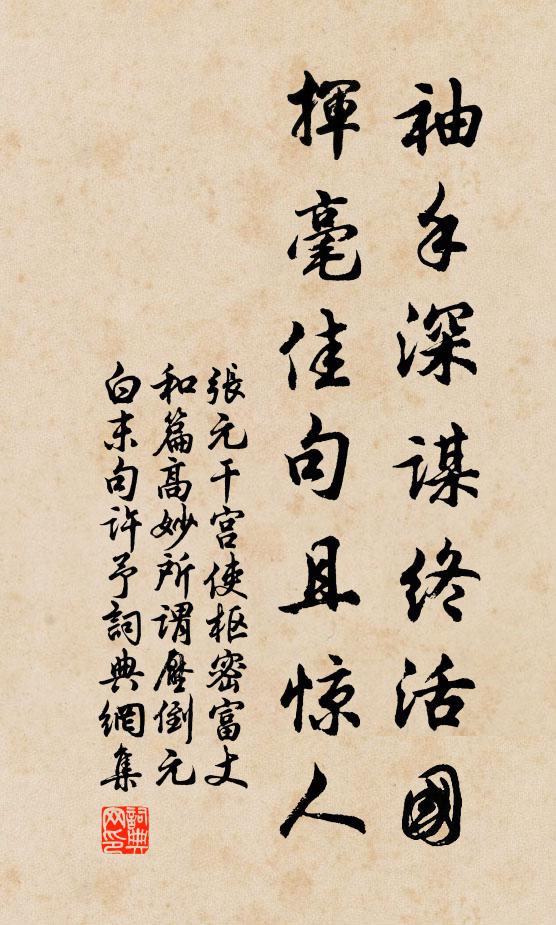 袖手深謀終活國
揮毫佳句且惊人
張元干宫使枢密富丈
和篇高妙所謂壓倒元
白末句許予詞典網集
詞典网印